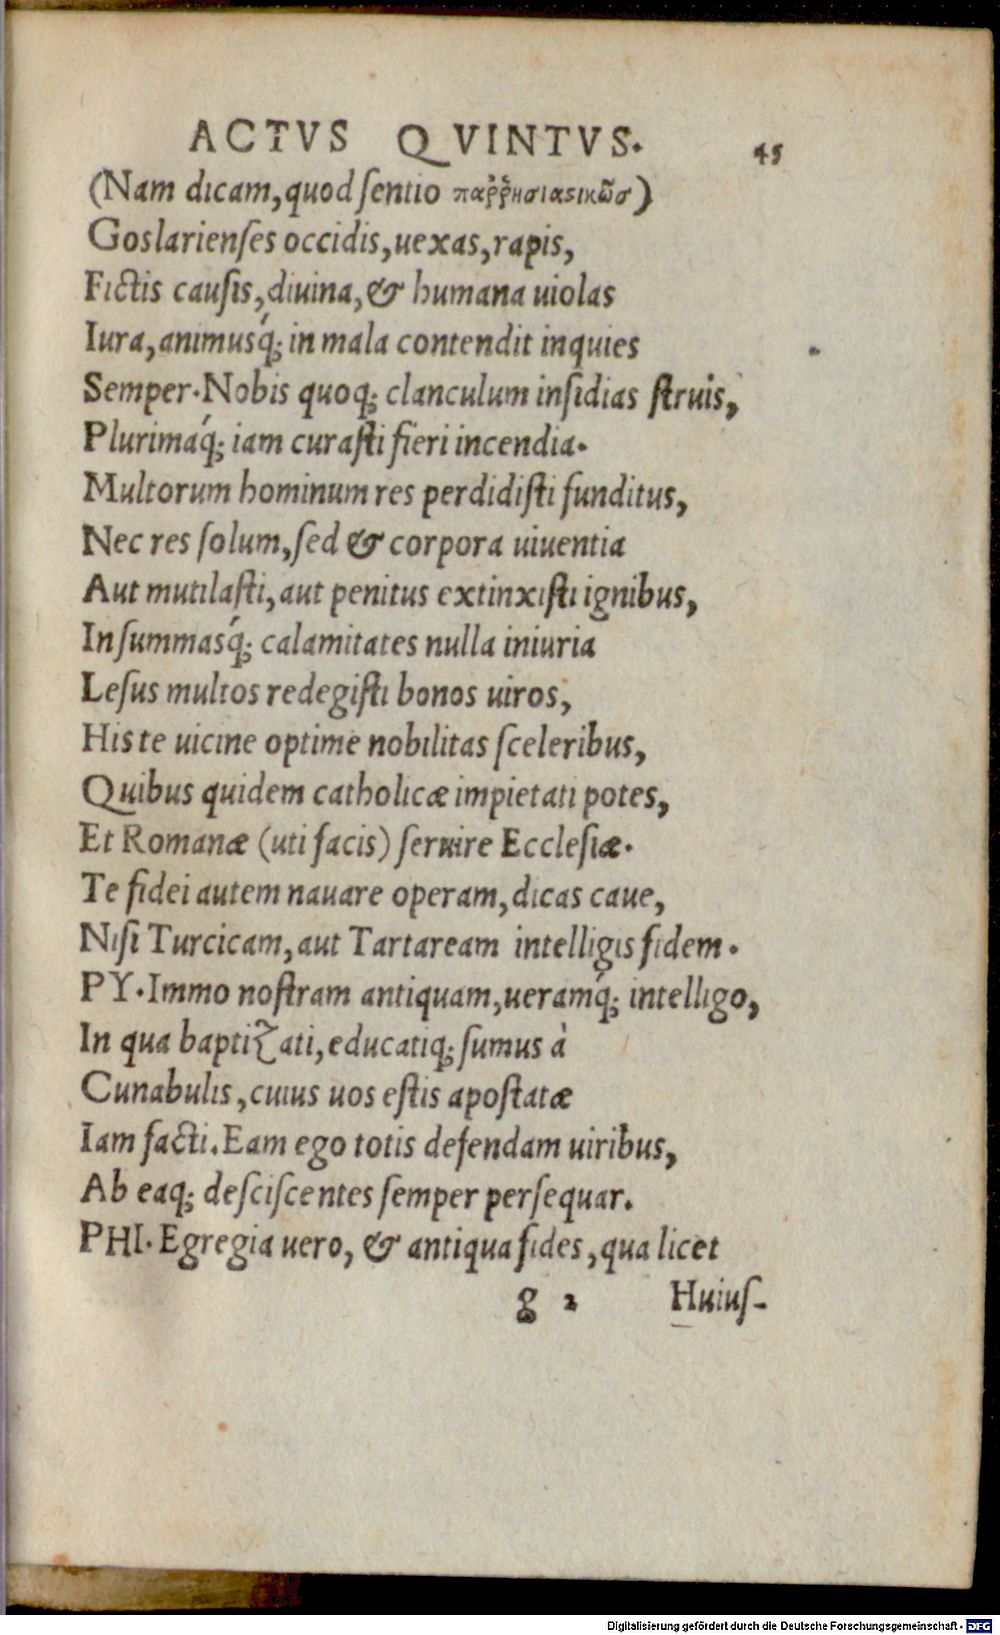 ACTVS QVINTVS. 45
(Nam dicam, quod ſentio παῤῥησιαςικῶσ)
Goslarienſes occidis, uexas, rapis,
Fictis cauſis, diuina, & humana uiolas
Iura, animusq́; in mala contendit inquies
Semper. Nobis quoq; clanculum inſidias ſtruis,
Plurimaq́; iam curaſti fieri incendia.
Multorum hominum res perdidiſti funditus,
Nec res ſolum, ſed & corpora uiuentia
Aut mutilaſti, aut penitus extinxiſti ignibus,
In ſummasq́; calamitates nulla iniuria
Leſus multos redegiſti bonos uiros,
His te uicine optime nobilitas ſceleribus,
Quibus quidem catholicæ impietati potes,
Et Romanæ (uti facis) ſeruire Eccleſiæ.
Te fidei autem nauare operam, dicas caue,
Niſi Turcicam, aut Tartaream intelligis fidem.
PY. Immo noſtram antiquam, ueramq́; intelligo,
In qua baptizati, educatiq; ſumus à
Cunabulis, cuius uos eſtis apoſtatæ
Iam facti. Eam ego totis defendam uiribus,
Ab eaq; deſciſcentes ſemper perſequar.
PHI. Egregia uero, & antiqua fides, qua licet
g 2 Huiuſ-
Digitalisierung gefördert durch die Deutsche Forschungsgemeinschaft - DFG